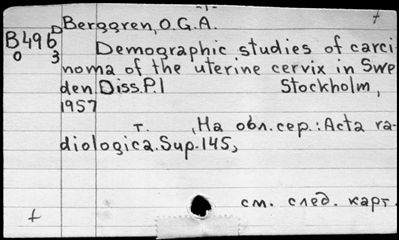 -1-
Berggren, O.G.A.
B496 D
0 3
Demographic studies of carci-
noma of the uterine cervix in Swe
den. Diss. P.1 Stockholm,
1957
т. , На обл. сер.: Acta ra-
diologica. Sup. 145,
см. след. карт.